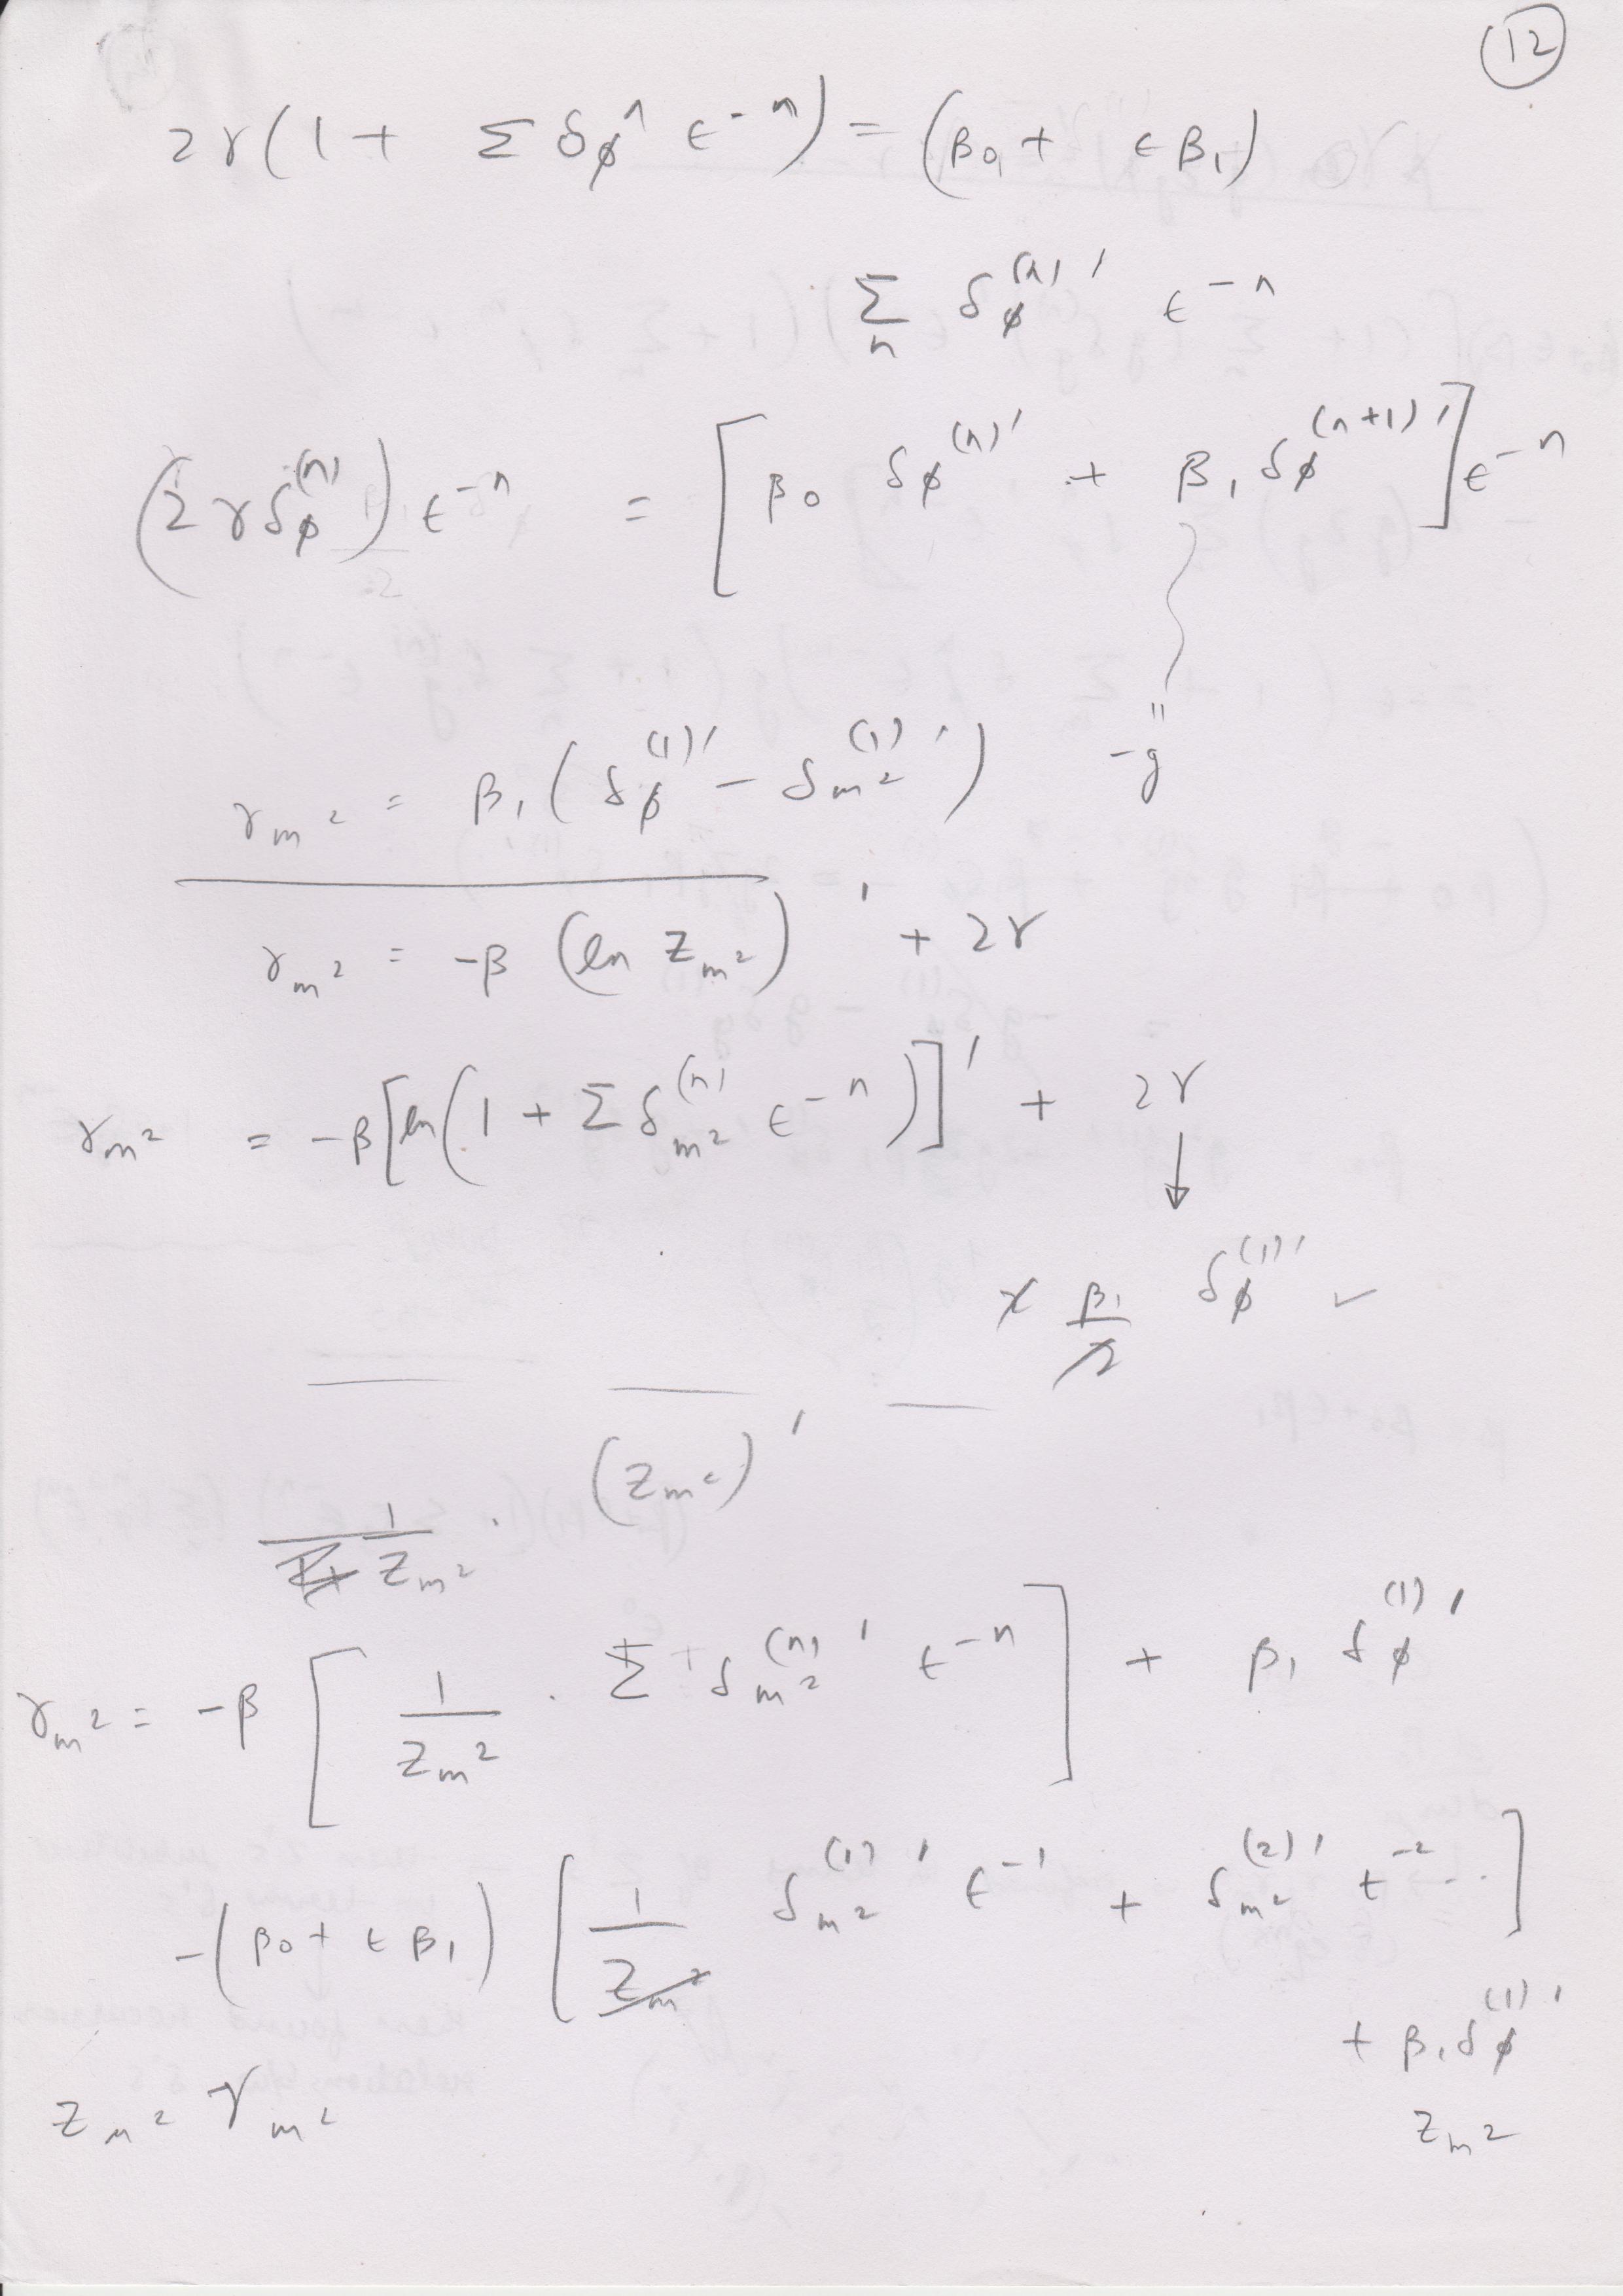 12
2γ(1 + Σ δ_ϕ^n ϵ^{-n}) = (β_0 + ϵβ_1)
Σ_n δ_ϕ^{(n)'} ϵ^{-n}
(2γδ_ϕ^{(n)}) ϵ^{-n} = [β_0 δ_ϕ^{(n)'} + β_1 δ_ϕ^{(n+1)'}] ϵ^{-n}
γ_{m^2} = β_1 (δ_ϕ^{(1)'} - δ_{m^2}^{(1)'})
" -g
γ_{m^2} = -β (ln Z_{m^2})' + 2γ
γ_{m^2} = -β [ln(1 + Σ δ_{m^2}^{(n)} ϵ^{-n})]' + 2γ
↓
2 β_1/2 δ_ϕ^{(1)'} ✓
1/Z_{m^2} . (Z_{m^2})'
γ_{m^2} = -β [1/Z_{m^2} . Σ δ_{m^2}^{(n)'} ϵ^{-n}] + β_1 δ_ϕ^{(1)'}
-(β_0 + ϵβ_1) [1/Z_{m^2} δ_{m^2}^{(1)'} ϵ^{-1} + δ_{m^2}^{(2)'} ϵ^{-2} ..]
+ β_1 δ_ϕ^{(1)'}
Z_{m^2} γ_{m^2} Z_{m^2}